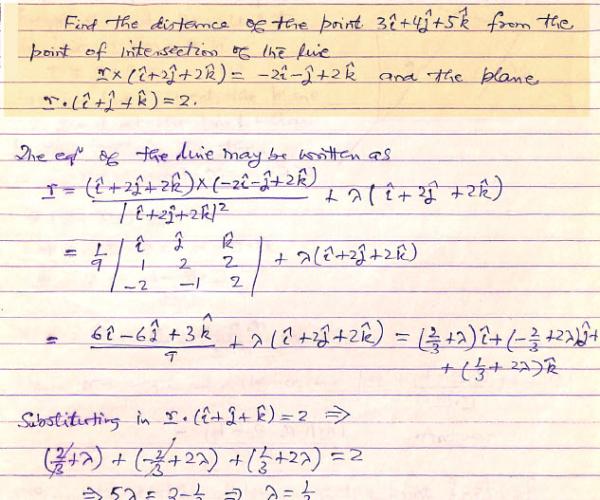 Find the distance of the point 3î+4ĵ+5k̂ from the
point of intersection of the line
r×(î+2ĵ+2k̂) = -2î-ĵ+2k̂ and the plane
r·(î+ĵ+k̂)=2.
The eqⁿ of the line may be written as
r = (î+2ĵ+2k̂)×(-2î-ĵ+2k̂) / |î+2ĵ+2k̂|² + λ(î+2ĵ+2k̂)
= 1/9 | î ĵ k̂
1 2 2
-2 -1 2 | + λ(î+2ĵ+2k̂)
= 6î-6ĵ+3k̂ / 9 + λ(î+2ĵ+2k̂) = (2/3+λ)î+(-2/3+2λ)ĵ+
+(1/3+2λ)k̂
Substituting in r·(î+ĵ+k̂)=2 ⇒
(2/3+λ) + (-2/3+2λ) + (1/3+2λ) = 2
⇒ 5λ = 2-1/3 ⇒ λ = 1/3